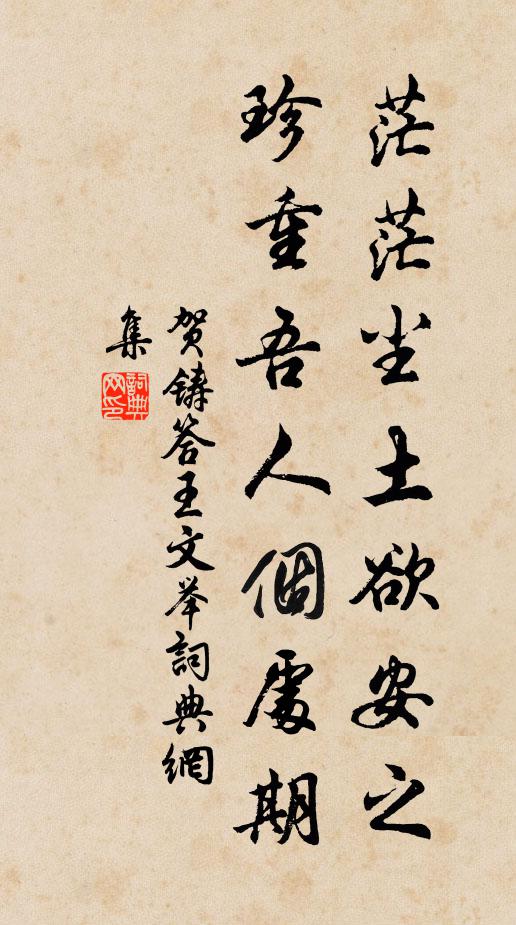 茫茫尘土欲安之
珍重吾人個處期
贺铸答王文举詞典網
集
詞典
网印